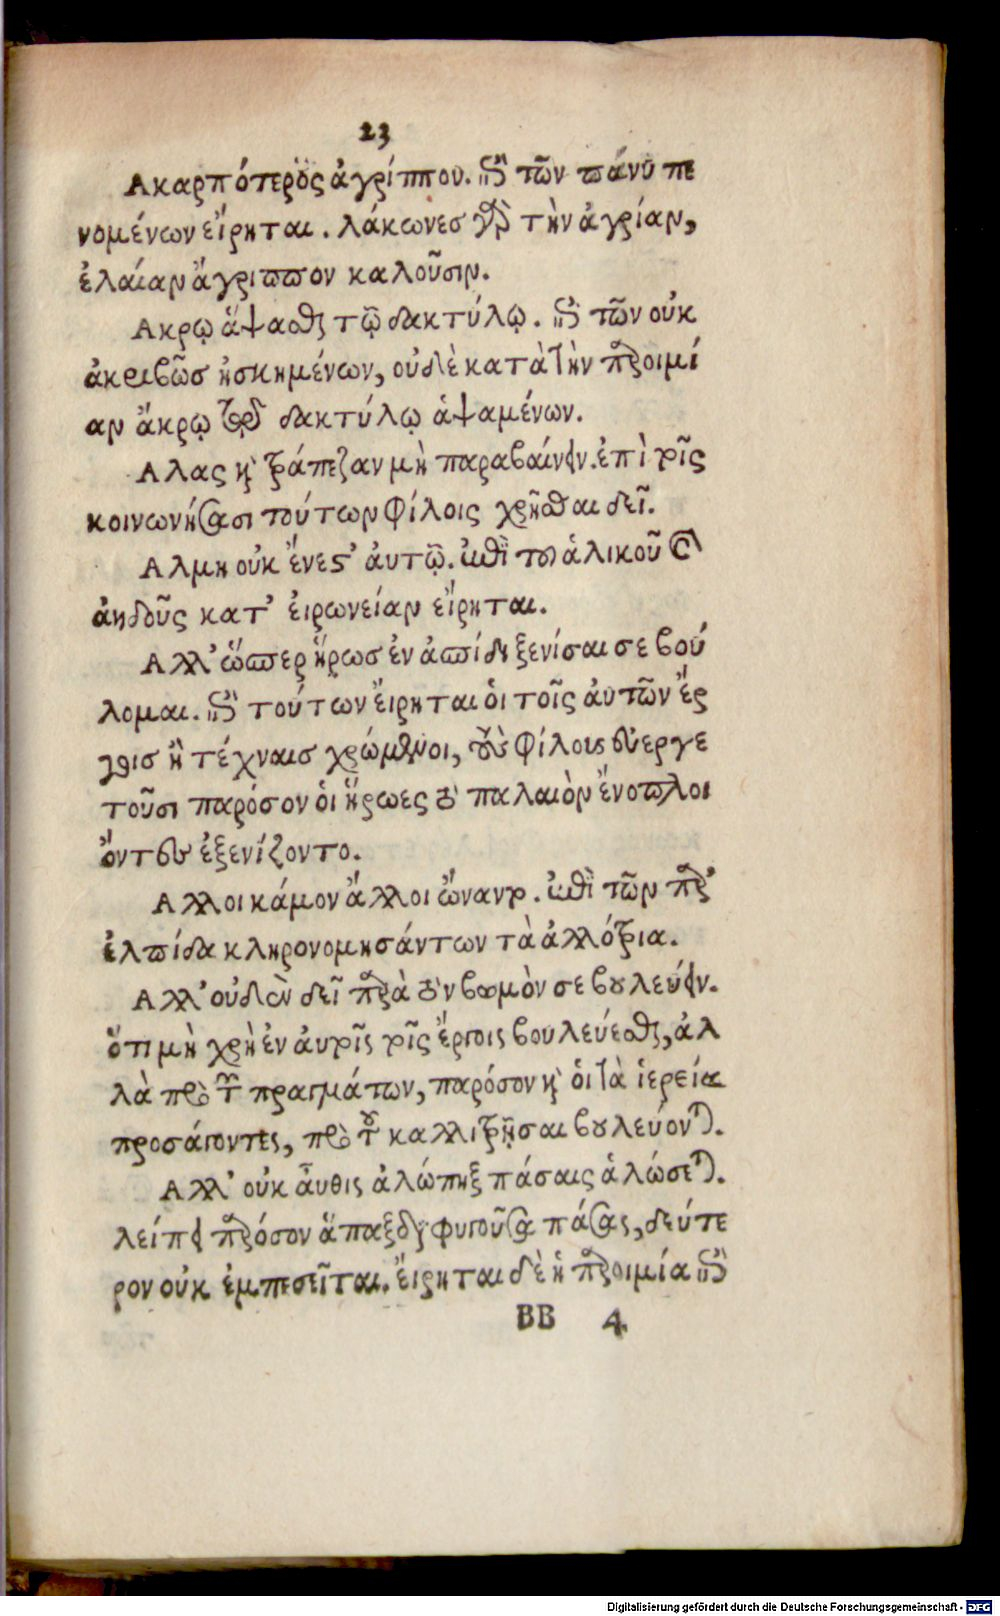 23
Ακαρπότερος ἀγρίππου. ἐπὶ τῶν πάνυ πε
νομένων εἴρηται. λάκωνες γὰρ τὴν ἀγρίαν,
ἐλαίαν ἄγριππον καλοῦσιν.
Ακρῳ ἅψασθαι τῷ δακτύλῳ. ἐπὶ τῶν οὐκ
ἀκριβῶσ ἠσκημένων, οὐδὲ κατὰ τὴν παροιμί
αν ἄκρῳ τῷ δακτύλῳ ἁψαμένων.
Αλας καὶ τράπεζαν μὴ παραβαίνειν. ἐπὶ τοῖς
κοινωνήσασι τούτων φίλοις χρῆσθαι δεῖ.
Αλμη οὐκ ἔνεστ' ἀυτῷ. ἐπὶ τοῦ ἁλικοῦ καὶ
ἀηδοῦς κατ' ἐιρωνείαν εἴρηται.
Αλλ' ὥσπερ ἥρωσ ἐν ἀσπίδι ξενίσαι σε βού
λομαι. ἐπὶ τούτων εἴρηται οἱ τοῖς ἀυτῶν ἔρ
γοισ ἢ τέχναισ χρώμενοι, τοὺς φίλους εὐεργε
τοῦσι παρόσον οἱ ἥρωες τὸ παλαιὸν ἔνοπλοι
ὄντες ἐξενίζοντο.
Αλλοι κάμον ἄλλοι ὤναντο. ἐπὶ τῶν παρ'
ἐλπίδα κληρονομησάντων τὰ ἀλλότρια.
Αλλ' οὐδὲν δεῖ παρὰ τὸν βωμὸν σε βουλεύειν.
ὅτι μὴ χρὴ ἐν ἀυτοῖς τοῖς ἔργοις βουλεύεσθαι, ἀλ
λὰ πρὸ τῶν πραγμάτων, παρόσον καὶ οἱ τὰ ἱερεία
προσάγοντες, πρὸ τοῦ καλλιερῆσαι βουλεύονται.
Αλλ' οὐκ ἆυθις ἀλώπηξ πάσαις ἁλώσεται.
λείπει παρόσον ἅπαξ διαφυγοῦσα πάσας, δεύτε
ρον οὐκ ἐμπεσεῖται. εἴρηται δὲ ἡ παροιμία ἐπὶ
BB 4